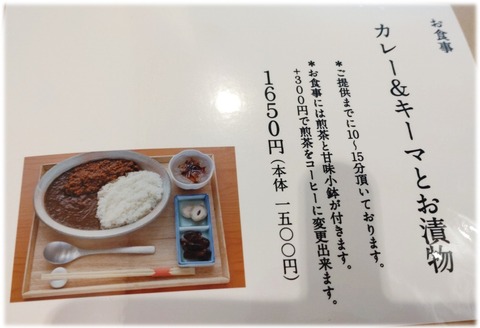 お食事
カレー&キーマとお漬物
*ご提供までに10~15分頂いております。
*お食事には煎茶と甘味小鉢が付きます。
+300円で煎茶をコーヒーに変更出来ます。
1650円(本体 一五〇〇円)